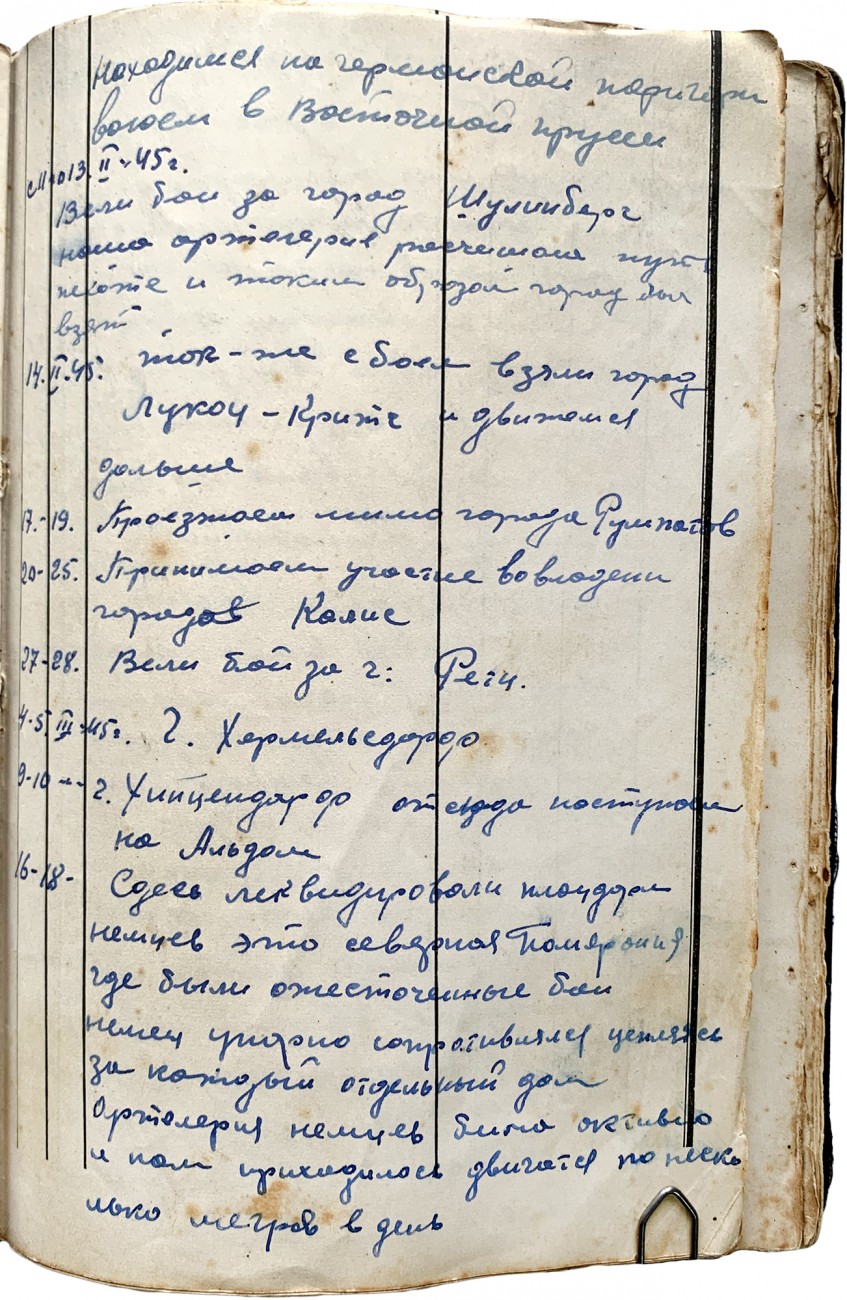 Находимся на германской
воюем в Восточной прусии
с 11 по 13. II-45г.
Вели бои за город Шулинберг
наша артелерия расчищала путь
пехоте и таким образом город был
взят
14.II.45г. так-же с боем взяли город
Лукоц-Критч и движемся
дальше
17.-19. Проезжаем мимо города Румпатов
20-25. Принимаем участие вовладени
городов Калис
27-28. Вели бой за г: Регц.
4-5 III-45г. Г. Хермельсдорф
9-10 -"- г. Хипцендорф отсюда наступаем
на Альдам
16-18- Сдесь леквидировали плацдарм
немцев это северная Памярания
где были ожесточенные бои
немец упорно сопротивлялся цепляясь
за каждый отдельный дом
Артелерия немцев била активно
и нам приходилось двигатся по неско
лько метров в день